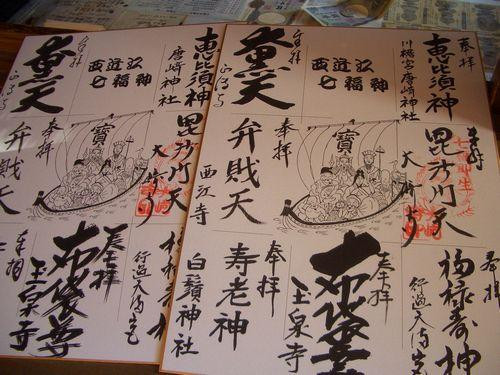 恵比須神
唐崎神社
西近江
七福神
奉拝
大黒天
毘沙門天
大崎寺
寶
奉拝
弁財天
西江寺
行過天満宮
奉拝
布袋尊
玉泉寺
奉拝
奉拝
恵比須神
川裾宮唐崎神社
西近江
七福神
奉拝
大黒天
奉拝
毘沙門天
大崎寺
寶
奉拝
弁財天
西江寺
奉拝
福禄寿神
行過天満宮
奉拝
布袋尊
玉泉寺
奉拝
寿老神
白鬚神社